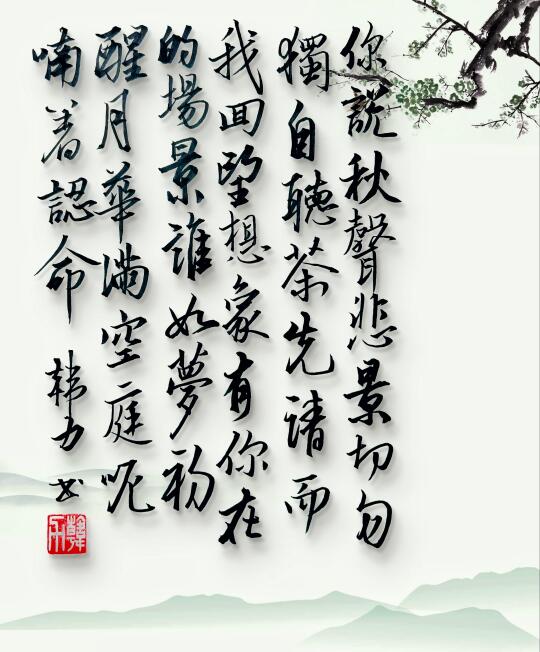 你說秋聲悲景切勿
獨自聽茶先請而
我回望想象有你在
的場景誰如夢初
醒月華滿空庭呢
喃着認命 韓力 书